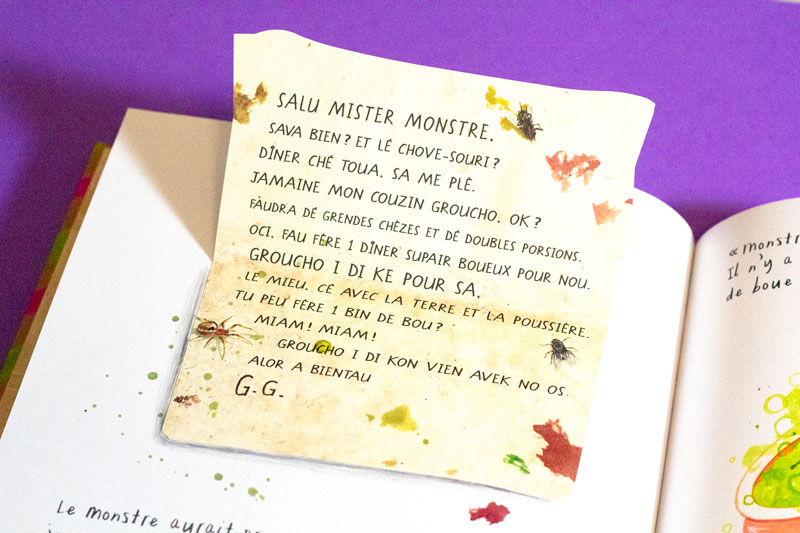 SALU MISTER MONSTRE.
SAVA BIEN? ET LÉ CHOVE-SOURI?
DÎNER CHÉ TOUA. SA ME PLÈ.
JAMAINE MON COUZIN GROUCHO. OK?
FAUDRA DÉ GRENDES CHÈZES ET DÉ DOUBLES PORSIONS.
OCI. FAU FÈRE 1 DÎNER SUPAIR BOUEUX POUR NOU.
GROUCHO I DI KE POUR SA.
LE MIEU. CÉ AVEC LA TERRE ET LA POUSSIÈRE.
TU PEU FÈRE 1 BIN DE BOU?
MIAM! MIAM!
GROUCHO I DI KON VIEN AVEK NO OS
ALOR A BIENTAU
G.G.
Le monstre aurait
« monstre
Il n'y a
de boue